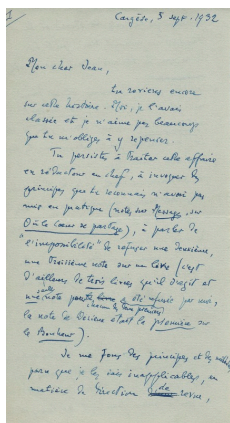 Cargèse, 5 sept. 1932
Mon cher Jean,
Tu reviens encore
sur cette histoire. Moi, je l'avais
classée et je n'aime pas beaucoup
que tu m'obliges à y repenser.
Tu persistes à traiter cette affaire
en rédacteur en chef, à invoquer des
principes que tu reconnais n'avoir pas
mis en pratique (notes sur Message, sur
Où le cœur se partage), à parler de
"l'impossibilité" de refuser une deuxième,
une troisième note sur un livre (c'est
d'ailleurs de trois livres qu'il s'agit et
note a été refusée par moi,
la note de était la première sur
le Bonheur).
Je me fous des principes et des
parce que je les sais inapplicables, en
matière de direction de revue,